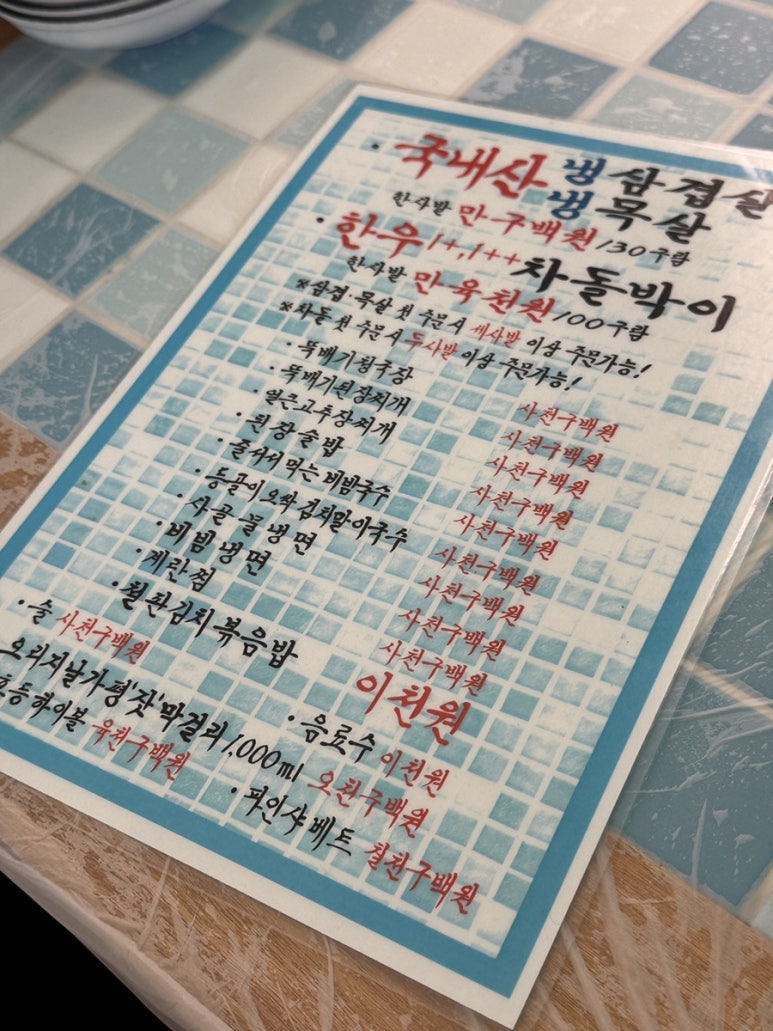 · 국내산 냉삼겹살
냉목살
한사발 만구백원/130구람
· 한우 1+,1++ 차돌박이
한사발 만육천원/100구람
※삼겹·목살 첫 주문시 세사발 이상 주문가능!
※차돌 첫 주문시 두사발 이상 주문가능!
· 뚝배기청국장 사천구백원
· 뚝배기된장찌개 사천구백원
· 얼큰고추장찌개 사천구백원
· 된장술밥 사천구백원
· 줄서서 먹는 비빔국수 사천구백원
· 등골이 오싹 김치말이국수 사천구백원
· 사골 물냉면 사천구백원
· 비빔냉면 사천구백원
· 계란찜 사천구백원
· 철판김치볶음밥 이천원
· 술 사천구백원 · 음료수 이천원
오리지날가평'잣'막걸리 1,000ml 오천구백원
하이볼 육천구백원 · 파인샤베트 칠천구백원